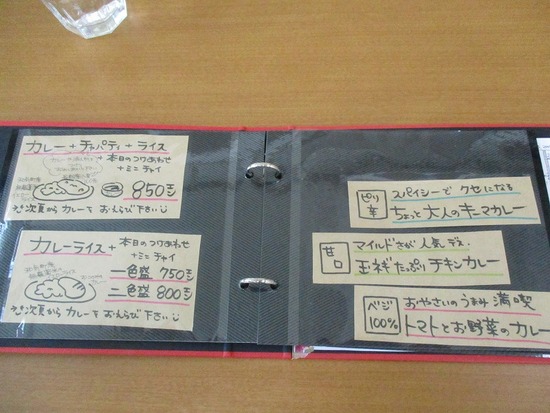 カレー + チャパティ + ライス
+ 本日のつけあわせ
+ ミニ チャイ
850モン
次頁から カレーを おえらび下さい
カレーライス + 本日のつけあわせ
+ ミニ チャイ
一色盛 750モン
二色盛 800モン
次頁から カレーを おえらび下さい
ピリ辛
スパイシーで クセになる
ちょっと大人のキーマカレー
甘口
マイルドさが 人気デス
玉ネギたっぷり チキンカレー
ベジ100%
おやさいのうまみ 満喫
トマトとお野菜のカレー